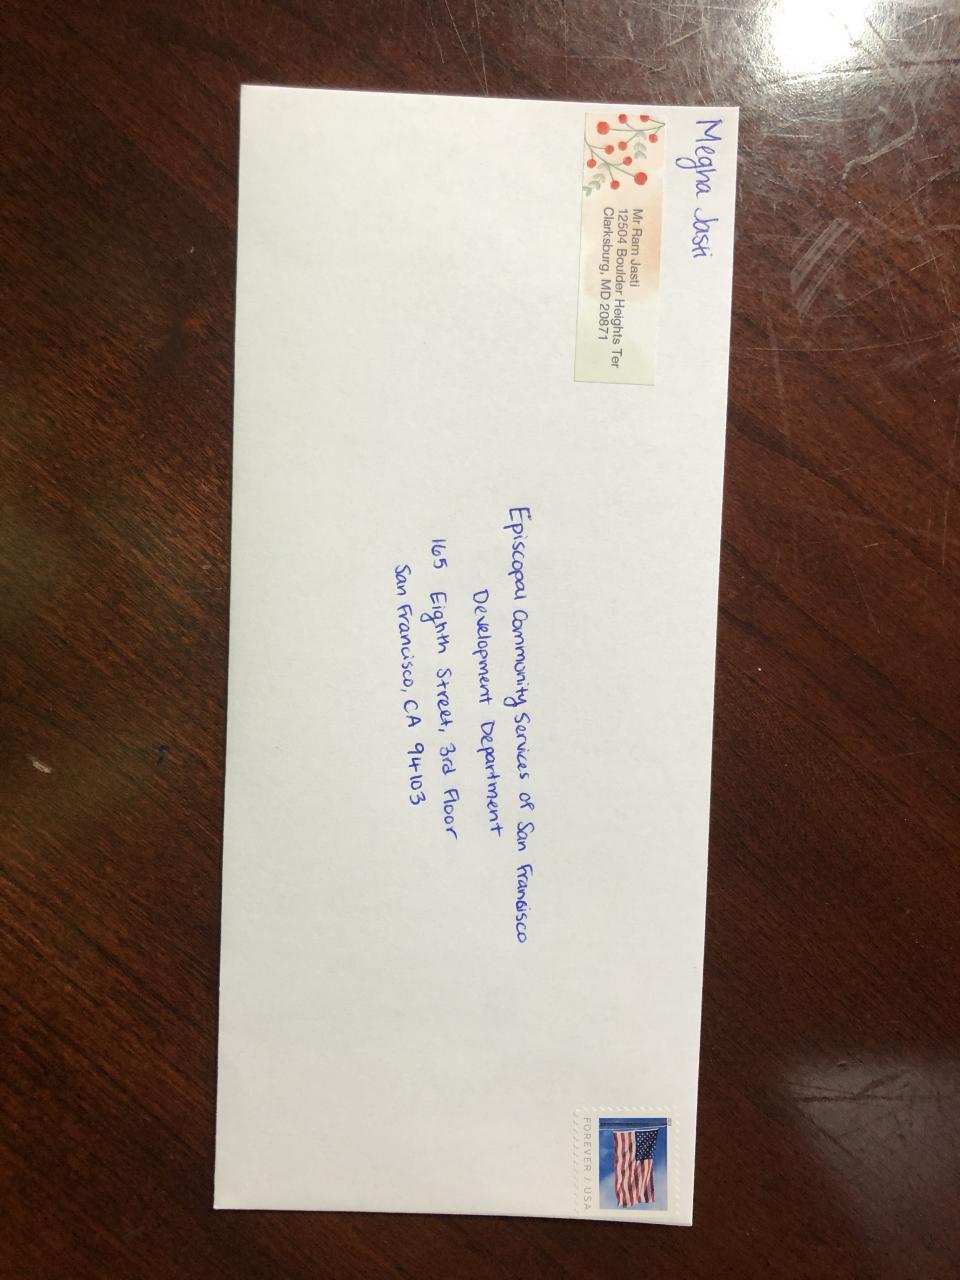 Megha Jasti
Mr Ram Jasti
12504 Boulder Heights Ter
Clarksburg, MD 20871
Episcopal Community Services of San Francisco
Development Department
165 Eighth Street, 3rd Floor
San Francisco, CA 94103
FOREVER / USA